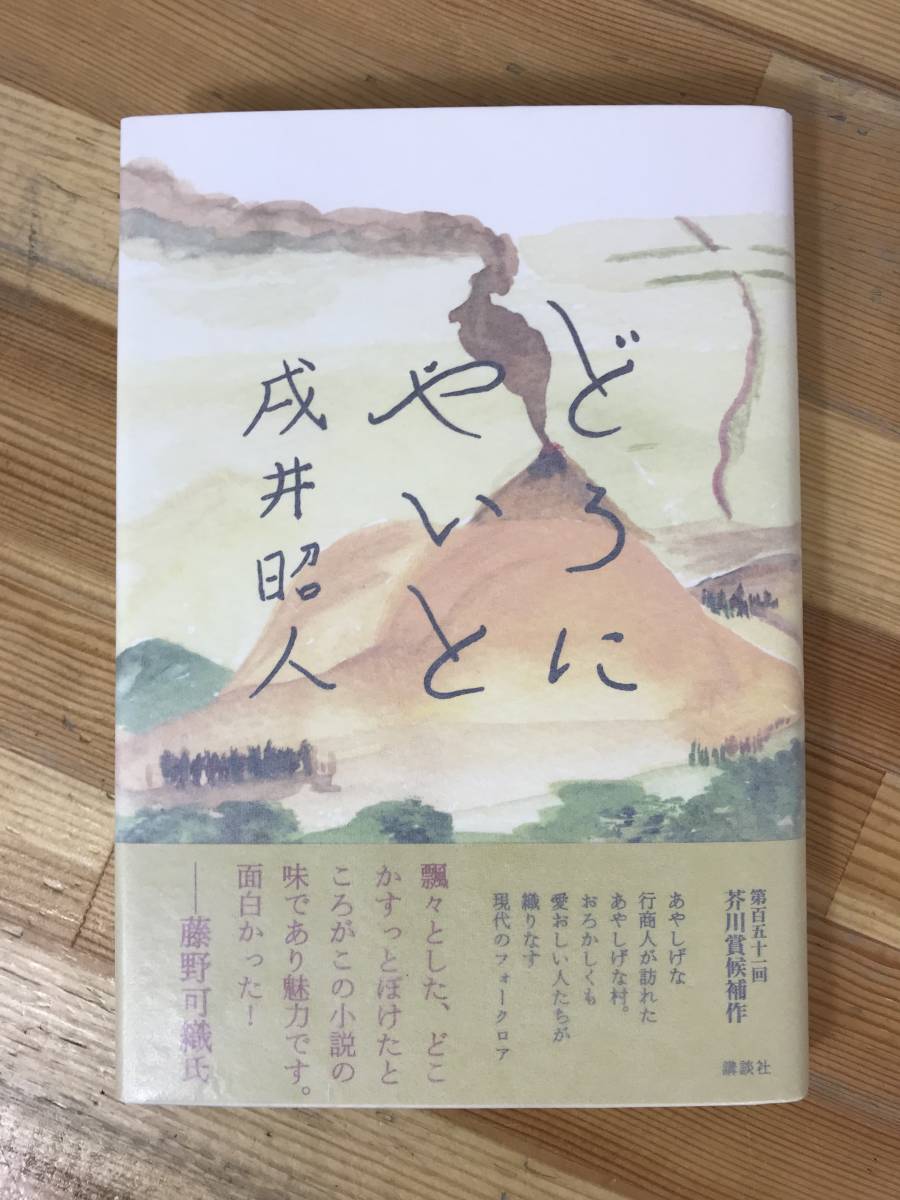 どろに
やいと
戌井昭人
第百五十一回
芥川賞候補作
講談社
あやしげな
行商人が訪れた
あやしげな村。
おろかしくも
愛おしい人たちが
織りなす
現代のフォークロア
飄々とした、どこ
かすっとぼけたと
ころがこの小説の
味であり魅力です。
面白かった！
──藤野可織氏